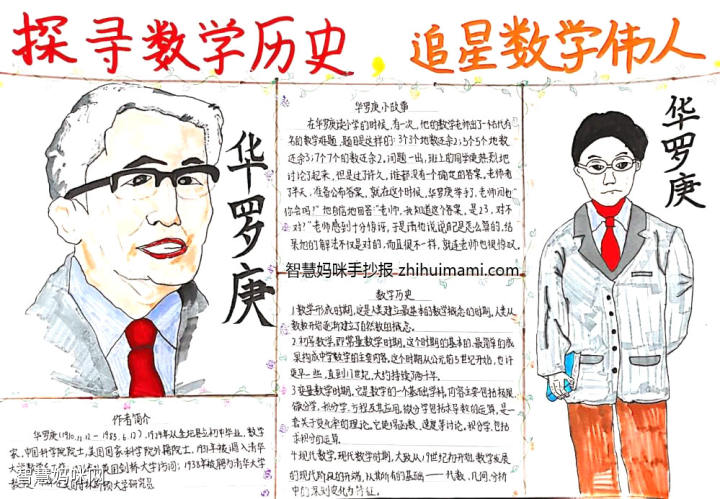 探寻数学历史，追星数学伟人
华罗庚
华罗庚小故事
在华罗庚读小学的时候，有一次，他的数学老师出了一个古代有
名的数学难题，题目是这样的：3个3个地数还余2；5个5个地数
还余3；7个7个的数还余2，问题一出，班上的同学便热烈地
讨论了起来，但是过了许久，谁都没有一个确定的答案。老师看
了半天，准备公布答案，就在这个时候，华罗庚举手，老师问他“
你会吗？”他自信地回答：“老师，我知道这个答案，是23，对不
对？”老师感到十分惊讶，于是请他说说自己是怎么算的，结
果他的解法不仅是对的，而且很不一样，就连老师也很惊叹。
智慧妈咪手抄报 zhihuimami.com
数学历史
1.数学形成时期，这是人类建立最基本的数学概念的时期。人类从
数数开始逐渐建立了自然数的概念。
2.初等数学，即常量数学时期。这个时期的基本的、最简单的成
果构成中学数学的主要内容。这个时期从公元前5世纪开始，也许
更早一些，直到17世纪，大约持续了两千年。
3.变量数学时期，它是数学的一个基础学科，内容主要包括极限、
微分学，积分学，方程及其应用，微分学包括求导数的运算，是一
套关于变化率的理论。它使得函数、速度等讨论，积分学，包括
求积分的运算
4.现代数学，现代数学时期，大致从19世纪初开始，数学发展
的现代阶段的开端，以其所有的基础——代数、几何、分析
中的深刻变化为特征。
华罗庚
作者简介
华罗庚（1910.11.12－1985.6.12），1924年从金坛县立初中毕业，数学
家，中国科学院院士，美国国家科学院外籍院士。1931年被调入清华
大学数学
英国剑桥大学访问；1938年被聘为清华大学
大学研究员
智慧妈咪网